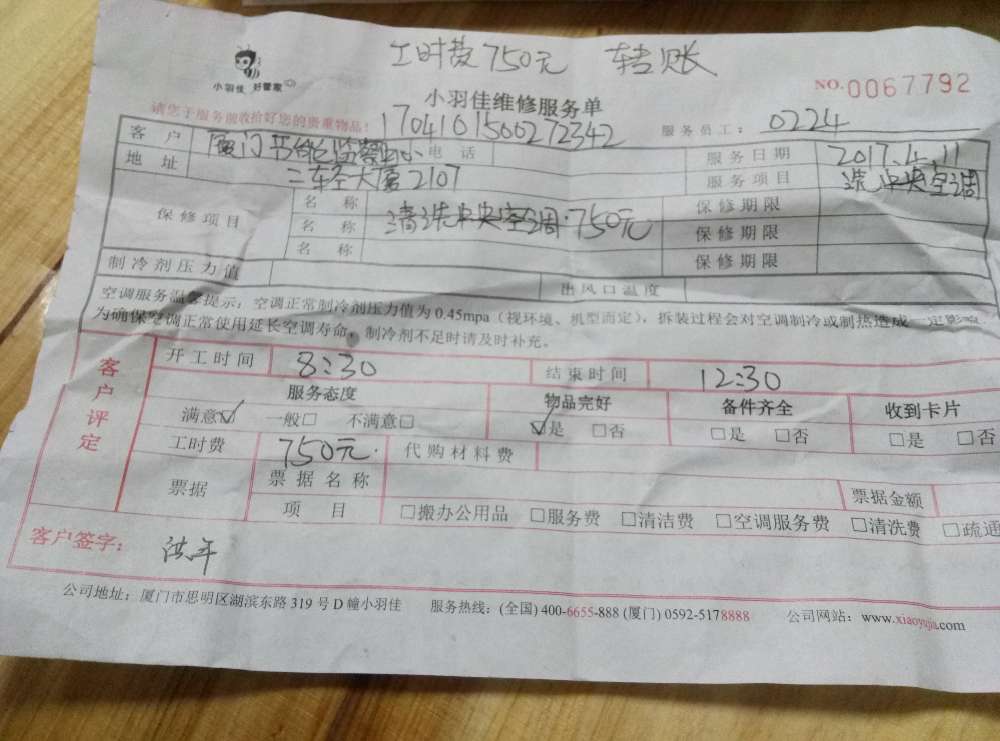 工时费750元 转账
小羽佳 好管家
NO.0067792
小羽佳维修服务单
请您于服务前收拾好您的贵重物品!
1704101500272342
服务员工: 0224
客户 厦门 电话 服务日期 2017.4.11
地址 大厦2107 服务项目 洗中央空调
保修项目 名称 保修期限
名称 清洗中央空调·750元 保修期限
名称 保修期限
制冷剂压力值 出风口温度
空调服务温馨提示:空调正常制冷剂压力值为0.45mpa(视环境、机型而定),拆装过程会对空调制冷或制热造成一定影响。
为确保空调正常使用延长空调寿命,制冷剂不足时请及时补充。
客户评定
开工时间 8:30 结束时间 12:30
服务态度 物品完好 备件齐全 收到卡片
满意☑ 一般□ 不满意□ ☑是 □否 □是 □否 □是 □否
工时费 750元. 代购材料费
票据 票据名称 票据金额
项目 □搬办公用品 □服务费 □清洁费 □空调服务费 □清洗费 □疏通
客户签字: 洪年
公司地址:厦门市思明区湖滨东路319号D幢小羽佳 服务热线:(全国)400-6655-888 (厦门)0592-5178888 公司网站:www.xiaoyujia.com